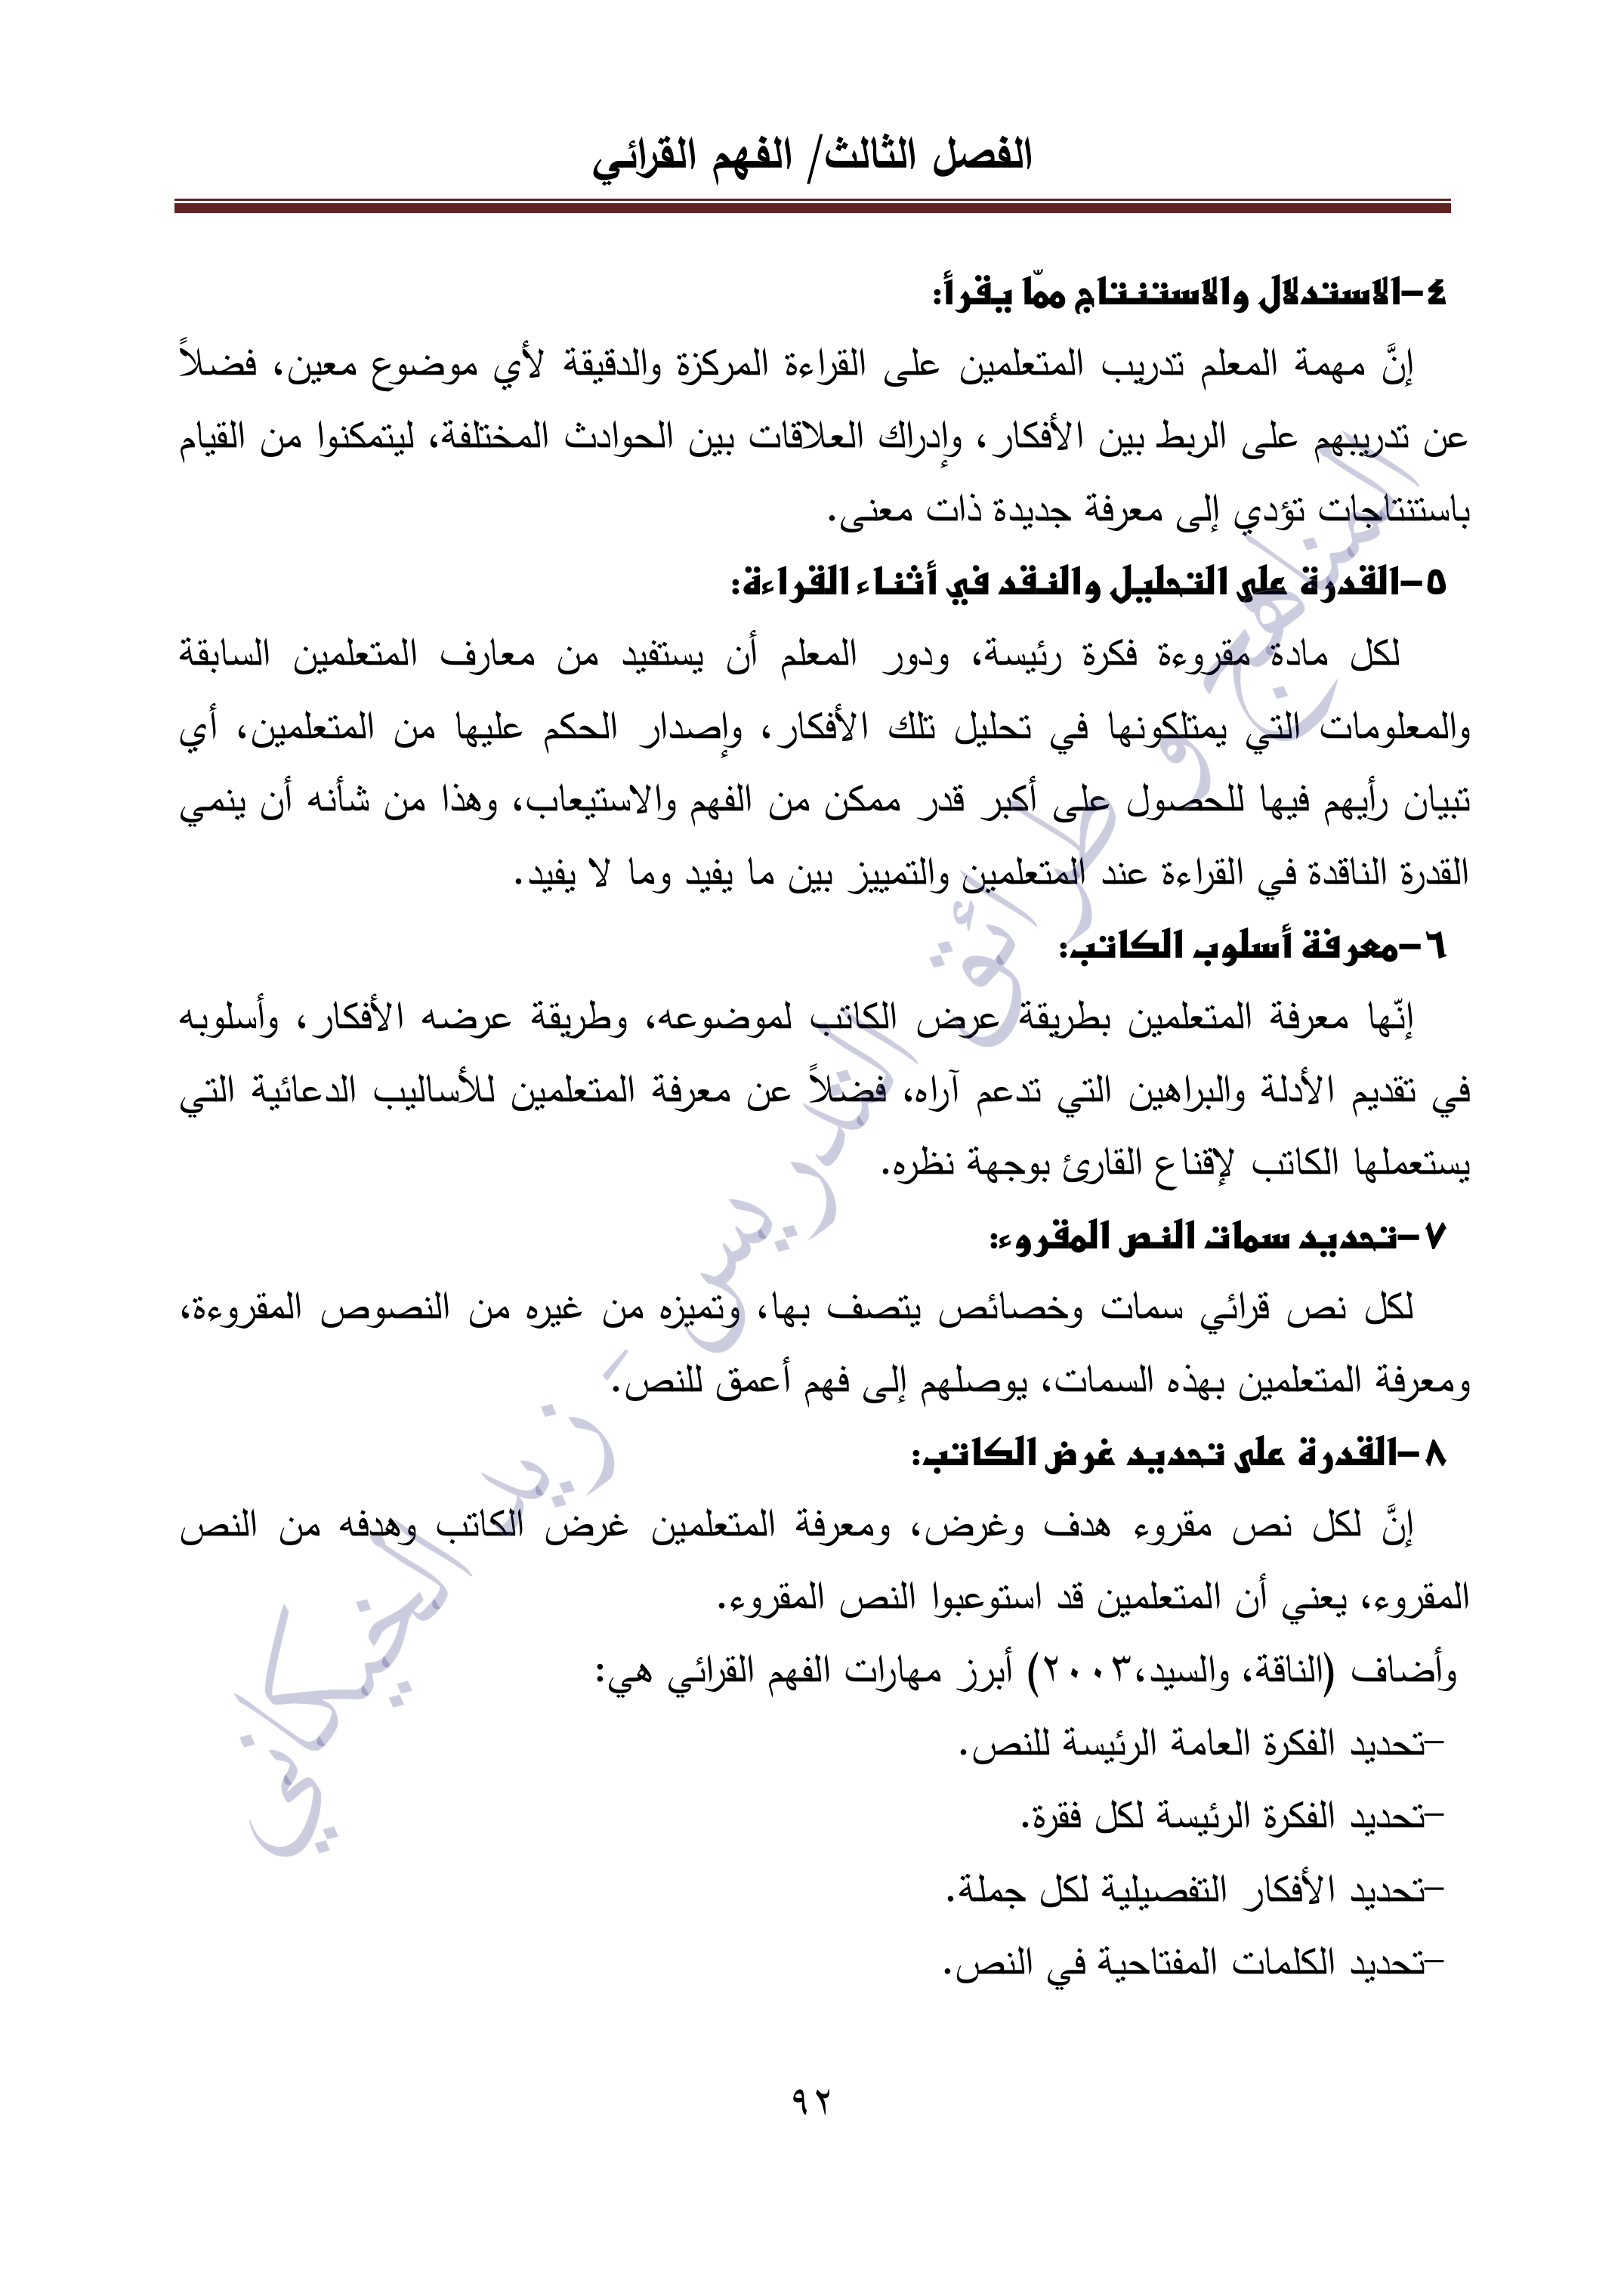 الفصل الثالث/ الفهم القرائي
٤-الاستدلال والاستنتاج ممّا يقرأ:
إنَّ مهمة المعلم تدريب المتعلمين على القراءة المركزة والدقيقة لأي موضوع معين، فضلاً
عن تدريبهم على الربط بين الأفكار، وإدراك العلاقات بين الحوادث المختلفة، ليتمكنوا من القيام
باستنتاجات تؤدي إلى معرفة جديدة ذات معنى.
٥-القدرة على التحليل والنقد في أثناء القراءة:
لكل مادة مقروءة فكرة رئيسة، ودور المعلم أن يستفيد من معارف المتعلمين السابقة
والمعلومات التي يمتلكونها في تحليل تلك الأفكار، وإصدار الحكم عليها من المتعلمين، أي
تبيان رأيهم فيها للحصول على أكبر قدر ممكن من الفهم والاستيعاب، وهذا من شأنه أن ينمي
القدرة الناقدة في القراءة عند المتعلمين والتمييز بين ما يفيد وما لا يفيد.
٦-معرفة أسلوب الكاتب:
إنّها معرفة المتعلمين بطريقة عرض الكاتب لموضوعه، وطريقة عرضه الأفكار، وأسلوبه
في تقديم الأدلة والبراهين التي تدعم آراه، فضلاً عن معرفة المتعلمين للأساليب الدعائية التي
يستعملها الكاتب لإقناع القارئ بوجهة نظره.
٧-تحديد سمات النص المقروء:
لكل نص قرائي سمات وخصائص يتصف بها، وتميزه من غيره من النصوص المقروءة،
ومعرفة المتعلمين بهذه السمات، يوصلهم إلى فهم أعمق للنص.
٨-القدرة على تحديد غرض الكاتب:
إنَّ لكل نص مقروء هدف وغرض، ومعرفة المتعلمين غرض الكاتب وهدفه من النص
المقروء، يعني أن المتعلمين قد استوعبوا النص المقروء.
وأضاف (الناقة، والسيد،٢٠٠٣) أبرز مهارات الفهم القرائي هي:
-تحديد الفكرة العامة الرئيسة للنص.
-تحديد الفكرة الرئيسة لكل فقرة.
-تحديد الأفكار التفصيلية لكل جملة.
-تحديد الكلمات المفتاحية في النص.
٩٢
المناهج و طرائق التدريس - زيد الخيكاني